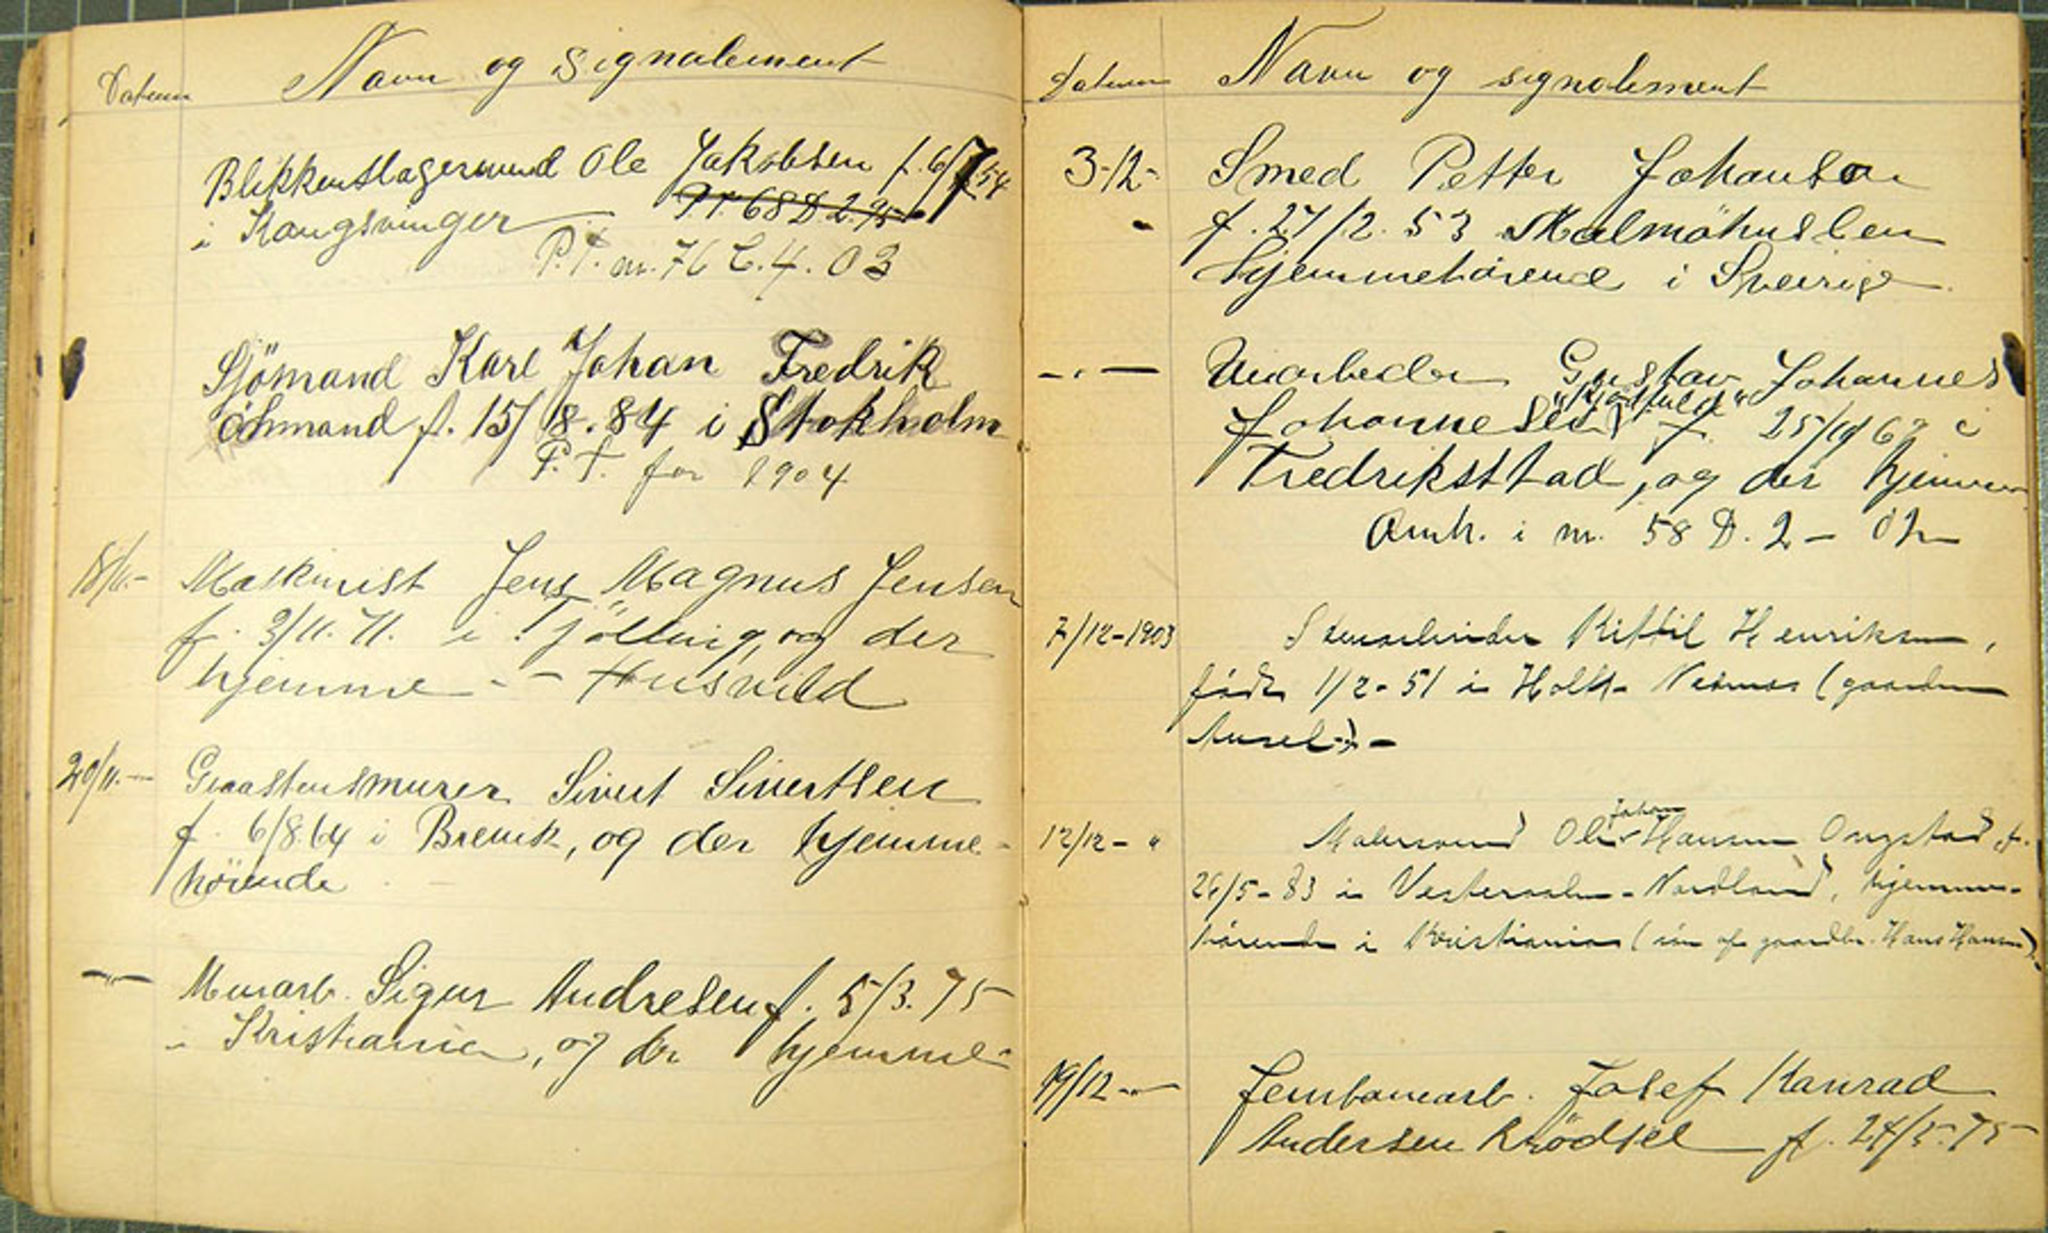 Datum Navn og signalement
Blikkenslagersvend Ole Jakobsen f. 6/7 54
i Kongsvinger P.T. 68 D. 2. 95
P.T. m. 76 C. 4. 03
Sjömand Karl Johan Fredrik
öhmand f. 15/8. 84 i Stokholm
P.T. for 1904
18/11.- Maskinist Jens Magnus Jensen
f. 3/11. 71. i Tjölling, og der
hjemme - - Husvild
20/11.- Graastensmurer Sivert Sivertsen
f. 6/8. 64 i Brevik, og der hjemme-
hörende
-"- Murarb. Sigur Andresen f. 5/3. 75
i Kristiania, og der hjemme-
Datum Navn og signalement
3-12- Smed Petter Johanson
f. 27/2. 53 Malmöhuslen
hjemmehörende i Sverige
-"- Gustav Johannes
Johannesen f. 25/10 i
Fredriksstad, og der hjemme
Anh. i m. 58 D. 2 - 02
7/12-1903 Stenarbeider Kittil Henriksen,
födt 1/2-51 i Holt - Nesnes (gaarden
12/12- " Malersvend Ole Johan Hansen Ongstad f.
26/5-83 i Vesteraalen - Nordland, hjemme-
hörende i Kristiania (sön af gaardbr. Hans Hansen).
19/12-"- Jernbanearb. Josef Konrad
Andersen Krödsel f. 24/5. 75